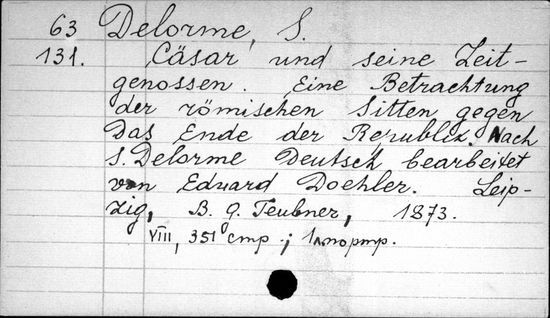 63 Delorme, S.
131. Cäsar und seine Zeit-
genossen. Eine Betrachtung
der römischen Sitten gegen
das Ende der Republik. Nach
S. Delorme Deutsch bearbeitet
von Eduard Doehler. Leip-
zig, B. G. Teubner, 1873.
VIII, 351 стр.; 1